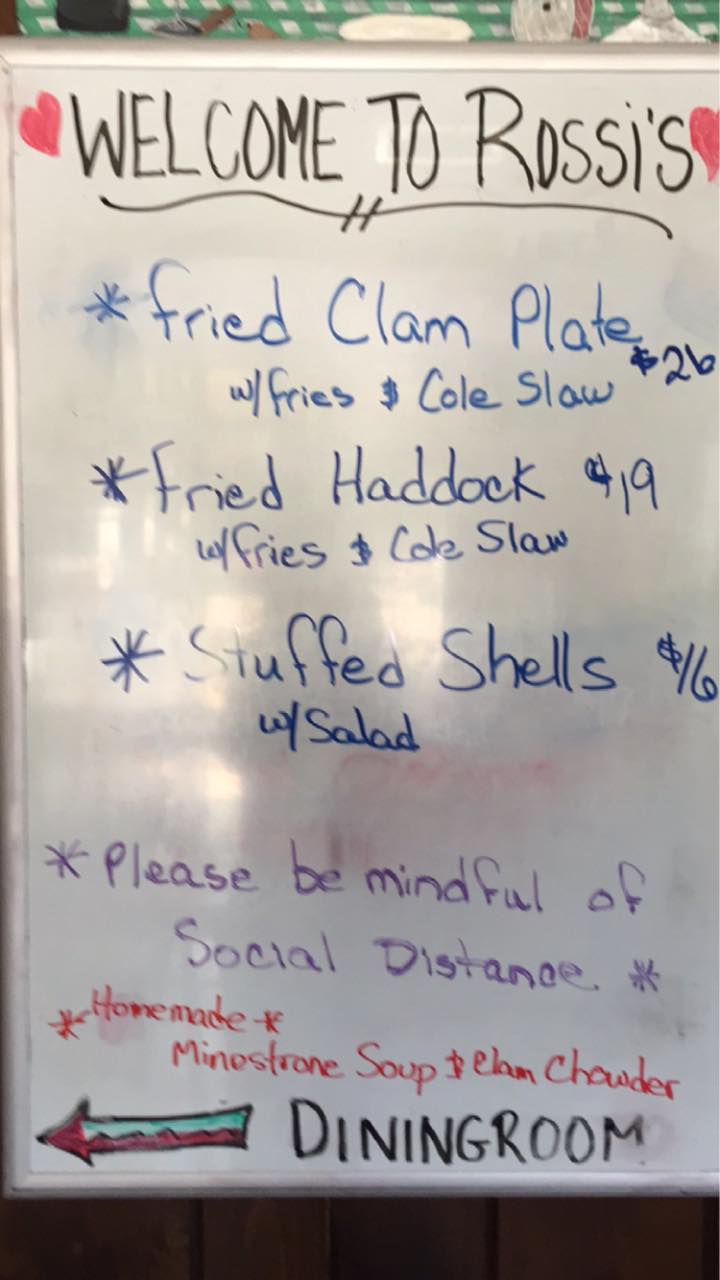 WELCOME TO ROSSi'S
*Fried Clam Plate
$26
w/fries & Cole Slaw
*Fried Haddock $19
w/fries & Cole Slaw
*Stuffed Shells $16
w/Salad
*Please be mindful of
Social Distance. *
*Homemade*
Minestrone Soup & Clam Chowder
DININGROOM